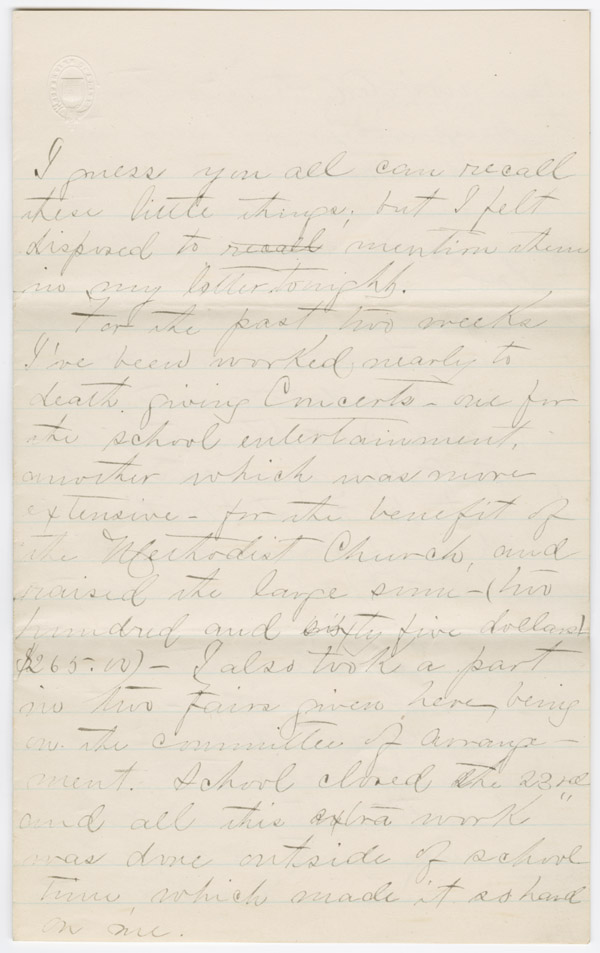 I guess you all can recall
these little things; but I felt
disposed to recall mention them
in my letter tonight.
For the past two weeks
I've been worked nearly to
death giving Concerts - one for
the school entertainment,
another which was more
extensive - for the benefit of
the Methodist Church, and
raised the large sum - (two
hundred and sixty five dollars
$265.00) - I also took a part
in two fairs given here, being
on the committee of arrange-
ment. School closed the 22nd
and all this extra work
was done outside of school
time which made it so hard
on me.